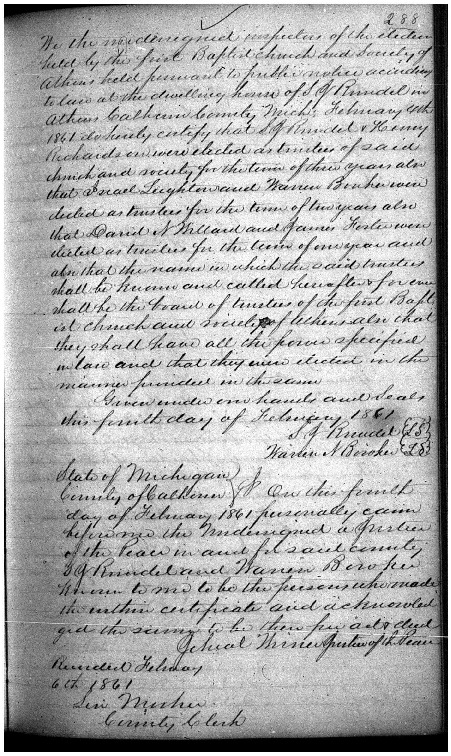 288
We the undersigned inspectors of the election
held by the first Baptist church and Society of
Athens held pursuant to public notice according
to law at the dwelling house of S J Rundel in
Athens Calhoun County Mich. February 4th
1861 do hereby certify that S J Rundel & Henry
Richardson were elected as trustees of said
church and society for the term of three years also
that Israel Leighton and Warren Booher were
elected as trustees for the term of two years also
that David N Willard and James Foster were
elected as trustees for the term of one year and
also that the name in which the said trustees
shall be known and called hereafter & for ever
shall be the board of trustees of the first Bapt
ist church and society of Athens also that
they shall have all the power specified
in law and that they were elected in the
manner provided in the same
Given under our hands and Seals
this fourth day of February 1861
S J Rundel {LS}
Warren N {LS}
State of Michigan }
County of Calhoun } SS On this fourth
day of February 1861 personally came
before me the Undersigned a Justice
of the Peace in and for said county
S J Rundel and Warren
known to me to be the persons who made
the within certificate and acknowled
ged the same to be their free act & deed
Justice of the Peace
Recorded February
6th 1861
Levi Mosher
County Clerk